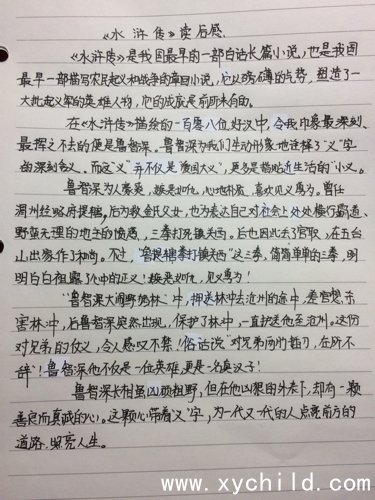 《水浒传》读后感.
《水浒传》是我国最早的一部白话长篇小说，也是我国
最早一部描写农民起义和战争的章回小说，它以磅礴的气势，塑造了一
大批起义军的英雄人物，他的成就是前所未有的。
在《水浒传》描绘的一百零八位好汉中，令我印象最深刻、
最挥之不去的便是鲁智深。鲁智深为我们生动形象地诠释了"义"字
的深刻含义、而这"义"并不仅是爱国大义"，更多是指贴近生活的"小义。
鲁智深为人豪爽，嫉恶如仇，心地朴质，喜欢见义勇为。曾任
渭州经略府提辖，后为救金氏父女，也为表达自己对社会上处处横行霸道、
野蛮无理的地主的愤慨，三拳打死镇关西。后也因此丢了官职，在五台
山出家作了和尚。不过，"鲁提辖拳打镇关西"这三拳，简简单单的三拳，明
明白白袒露了心中的正义！嫉恶如仇，见义勇为！
"鲁智深大闹野猪林"中，押送林冲去沧州的途中，差官想杀
害林冲，后鲁智深突然出现，保护了林冲，一直护送他至沧州。这份
对兄弟的仗义，令人感叹不禁！俗话说"对兄弟两肋插刀，在所不
辞"！鲁智深他不仅是一位英雄，更是一名真汉子！
鲁智深长相虽凶顽粗野，但在他凶狠的外表下，却有一颗
善良而真诚的心。这颗心带着"义"字，为一代又一代的人点亮前方的
道路，照亮人生。
www.xychild.com